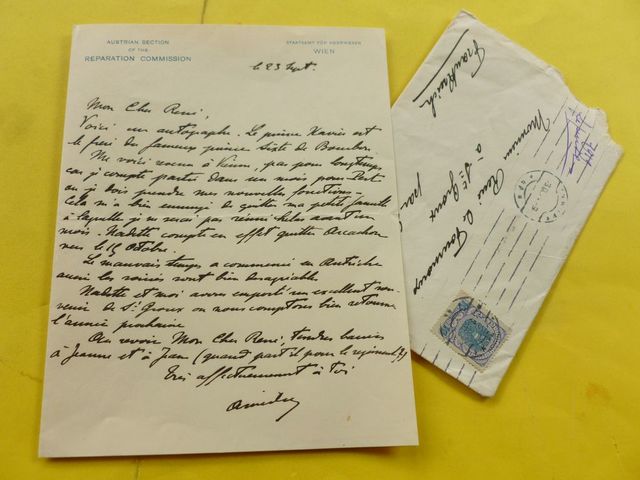 AUSTRIAN SECTION
OF THE
REPARATION COMMISSION
STAATSAMT FÜR HEERWESEN
WIEN
le 23 Sept.
Mon Cher René,
Voici un autographe. Le prince Xavier est
le frère du fameux prince Sixte de Bourbon.
Me voici revenu à Vienne, pas pour longtemps
car je compte partir dans un mois pour
où je dois prendre mes nouvelles fonctions.
Cela m'a bien ennuyé de quitter ma petite famille
à laquelle je ne serai pas réuni hélas avant un
mois. Nadette compte en effet quitter Arcachon
vers le 15 Octobre.
Le mauvais temps a commencé en Autriche
aussi les soirées sont bien désagréables.
Nadette et moi avons emporté un excellent sou-
venir de St Groux où nous comptons bien retourner
l'année prochaine
Au revoir Mon Cher René, tendres baisers
à Jeanne et à Jean (quand part il pour le régiment?)
Très affectueusement à toi
Frankreich
Monsieur René de
à St Groux
par